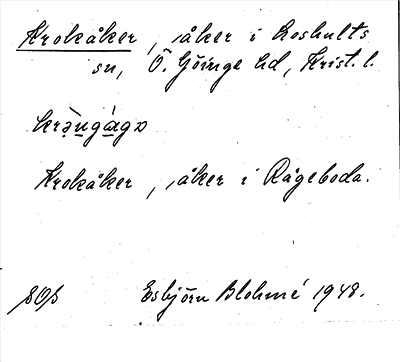 Krokåker, åker i Loshults
sn, Ö. Göinge hd, Krist. l.
Krokåker, åker i Rågeboda.
Esbjörn Blohmé 1948.